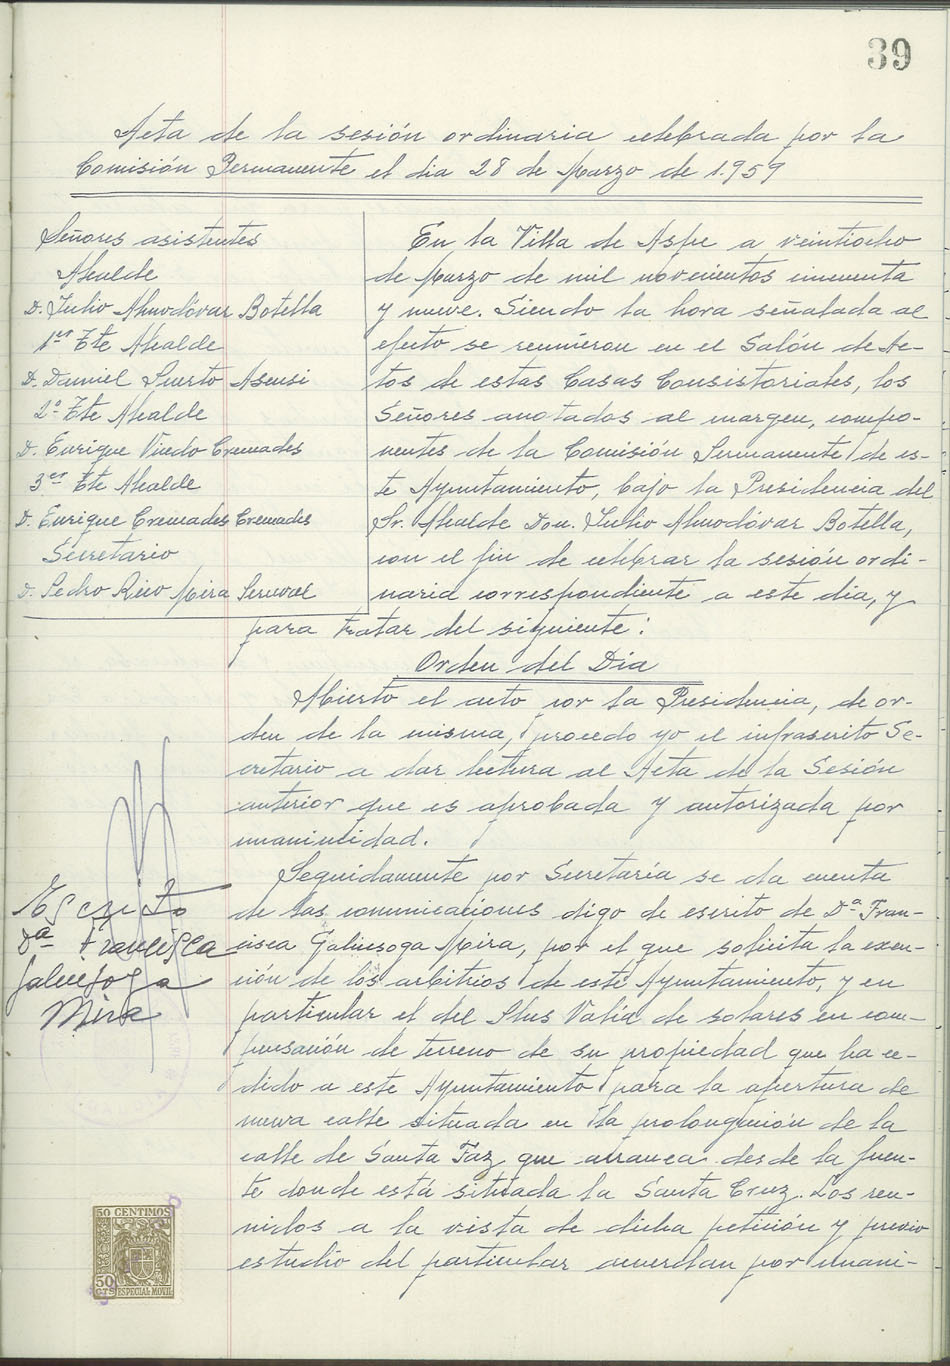 39
Acta de la sesión ordinaria celebrada por la
Comisión Permanente el dia 28 de Marzo de 1.959
Señores asistentes
Alcalde
D. Julio Almodóvar Botella
1er Tte Alcalde
D. Daniel Puerto Asensi
2º Tte Alcalde
D. Enrique Viñedo Cremades
3er Tte Alcalde
D. Enrique Cremades Cremades
Secretario
D. Pedro Rico Mira
En la Villa de Aspe a veintiocho
de Marzo de mil novecientos cincuenta
y nueve. Siendo la hora señalada al
efecto se reunieron en el Salón de Ac-
tos de estas Casas Consistoriales, los
Señores anotados al margen, compo-
nentes de la Comisión Permanente de es-
te Ayuntamiento, bajo la Presidencia del
Sr. Alcalde Don Julio Almodóvar Botella,
con el fin de celebrar la sesión ordi-
naria correspondiente a este dia, y
para tratar del siguiente:
Orden del Dia
Abierto el acto por la Presidencia, de or-
den de la misma, procedo yo el infrascrito Se-
cretario a dar lectura al Acta de la Sesión
anterior que es aprobada y autorizada por
unanimidad.
Seguidamente por Secretaría se da cuenta
de las comunicaciones digo de escrito de Dª Fran-
cisca Galiesoga Mira, por el que solicita la exen-
ción de los arbitrios de este Ayuntamiento, y en
particular el del Plus Valia de solares en com-
pensación de terreno de su propiedad que ha ce-
dido a este Ayuntamiento para la apertura de
nueva calle situada en la prolongación de la
calle de Santa Faz que arranca desde la fuen-
te donde está situada la Santa Cruz. Los reu-
nidos a la vista de dicha petición y previo
estudio del particular acuerdan por unani-
Escrito
Dª Francisca
Galiesoga
Mira
50 CENTIMOS
50
CTS ESPECIAL MOVIL